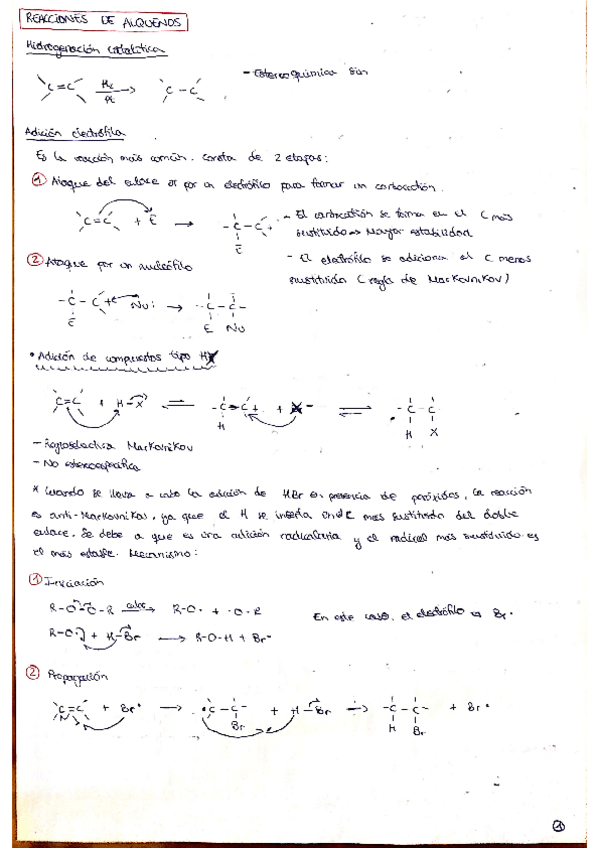 REACCIONES DE ALQUENOS
Hidrogenación catalítica
C=C H₂ Pt → C-C - Estereoquímica sin
Adición electrófila
Es la reacción más común. Consta de 2 etapas:
① Ataque del enlace π por un electrófilo para formar un carbocatión.
C=C + E → -C-C+ - El carbocatión se forma en el C más
sustituido → Mayor estabilidad
E
② Ataque por un nucleófilo - El electrófilo se adiciona al C menos
sustituido (regla de Markovnikov)
-C-C+ Nu: → -C-C-
E E Nu
• Adición de compuestos tipo HX
C=C + H-X ⇌ -C-C+ + X- ⇌ -C-C-
H H X
- Regioselectiva Markovnikov
- No estereoespecífica
* Cuando se lleva a cabo la adición de HBr en presencia de peróxidos, la reacción
es anti-Markovnikov, ya que el H se inserta en el C más sustituido del doble
enlace. Se debe a que es una adición radicalaria y el radical más sustituido es
el más estable. Mecanismo:
① Iniciación
R-O-O-R calor → R-O· + ·O-R En este caso, el electrófilo es Br·
R-O· + H-Br → R-O-H + Br·
② Propagación
C=C + Br· → ·C-C- + H-Br → -C-C- + Br·
Br H Br
1